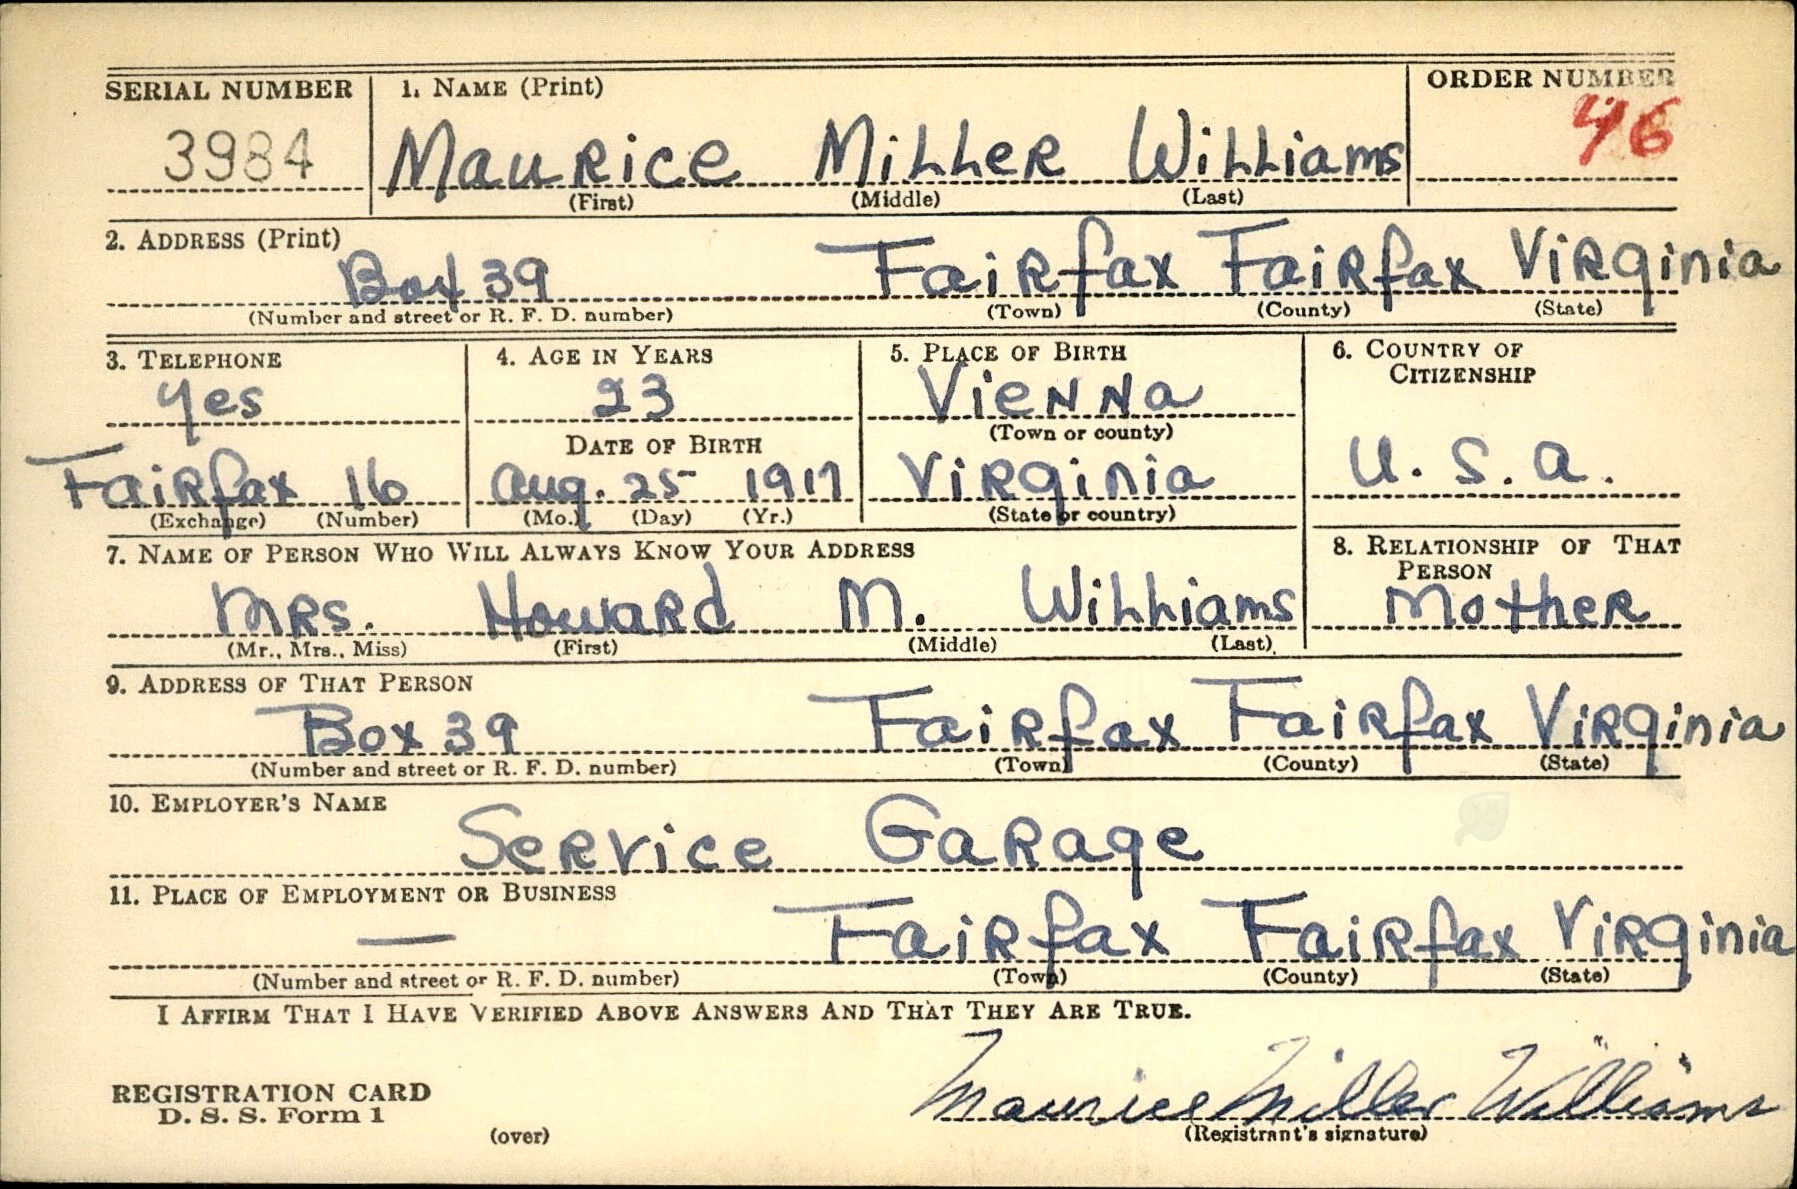 SERIAL NUMBER 1. NAME (Print) ORDER NUMBER
3984 Maurice Miller Williams 46
(First) (Middle) (Last)
2. ADDRESS (Print)
Box 39 Fairfax Fairfax Virginia
(Number and street or R. F. D. number) (Town) (County) (State)
3. TELEPHONE 4. AGE IN YEARS 5. PLACE OF BIRTH 6. COUNTRY OF CITIZENSHIP
Yes 23 Vienna
(Town or county)
DATE OF BIRTH
Fairfax 16 Aug. 25 1917 Virginia U. S. A.
(Exchange) (Number) (Mo.) (Day) (Yr.) (State or country)
7. NAME OF PERSON WHO WILL ALWAYS KNOW YOUR ADDRESS 8. RELATIONSHIP OF THAT PERSON
Mrs. Howard M. Williams Mother
(Mr., Mrs., Miss) (First) (Middle) (Last)
9. ADDRESS OF THAT PERSON
Box 39 Fairfax Fairfax Virginia
(Number and street or R. F. D. number) (Town) (County) (State)
10. EMPLOYER'S NAME
Service Garage
11. PLACE OF EMPLOYMENT OR BUSINESS
— Fairfax Fairfax Virginia
(Number and street or R. F. D. number) (Town) (County) (State)
I AFFIRM THAT I HAVE VERIFIED ABOVE ANSWERS AND THAT THEY ARE TRUE.
REGISTRATION CARD
D. S. S. Form 1
Maurice Miller Williams
(over) (Registrant's signature)